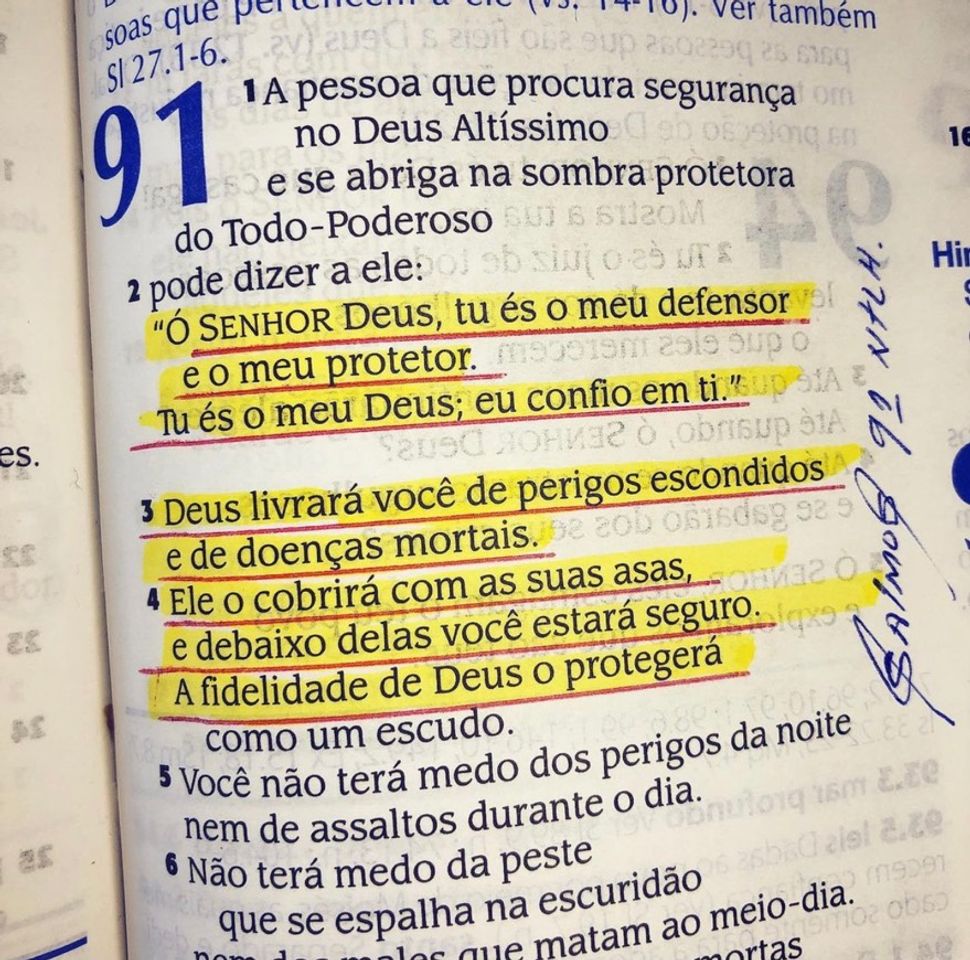 soas que pertencem a ele (vs. 14-16). Ver também
Sl 27.1-6.
91
1 A pessoa que procura segurança
no Deus Altíssimo
e se abriga na sombra protetora
do Todo-Poderoso
2 pode dizer a ele:
“Ó SENHOR Deus, tu és o meu defensor
e o meu protetor.
Tu és o meu Deus; eu confio em ti.”
3 Deus livrará você de perigos escondidos
e de doenças mortais.
4 Ele o cobrirá com as suas asas,
e debaixo delas você estará seguro.
A fidelidade de Deus o protegerá
como um escudo.
5 Você não terá medo dos perigos da noite
nem de assaltos durante o dia.
6 Não terá medo da peste
que se espalha na escuridão
nem dos males que matam ao meio-dia.
mortas
SALMOS 91 NTLH.
es.
16
Hin